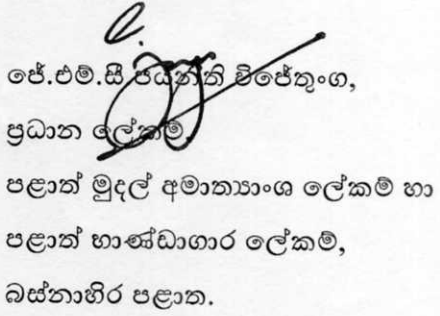 ජේ.එම්.සී ජයන්ති විජේතුංග,
ප්‍රධාන ලේකම්
පළාත් මුදල් අමාත්‍යාංශ ලේකම් හා
පළාත් භාණ්ඩාගාර ලේකම්,
බස්නාහිර පළාත.